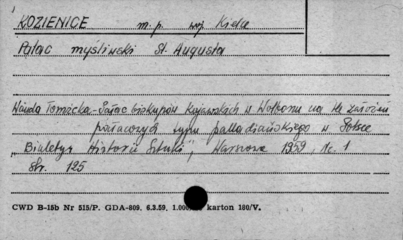 KOZIENICE m. p. woj. Kielce
Pałac myśliwski St. Augusta
Wanda Tomicka - Pałac biskupów Kujawskich w Wolborzu na tle założeń
pałacowych typu palladiańskiego w Polsce
„Biuletyn Historii Sztuki", Warszawa 1959, Nr. 1
str. 125
CWD B-15b Nr 515/P. GDA-809. 6.3.59. 1.000 karton 180/V.